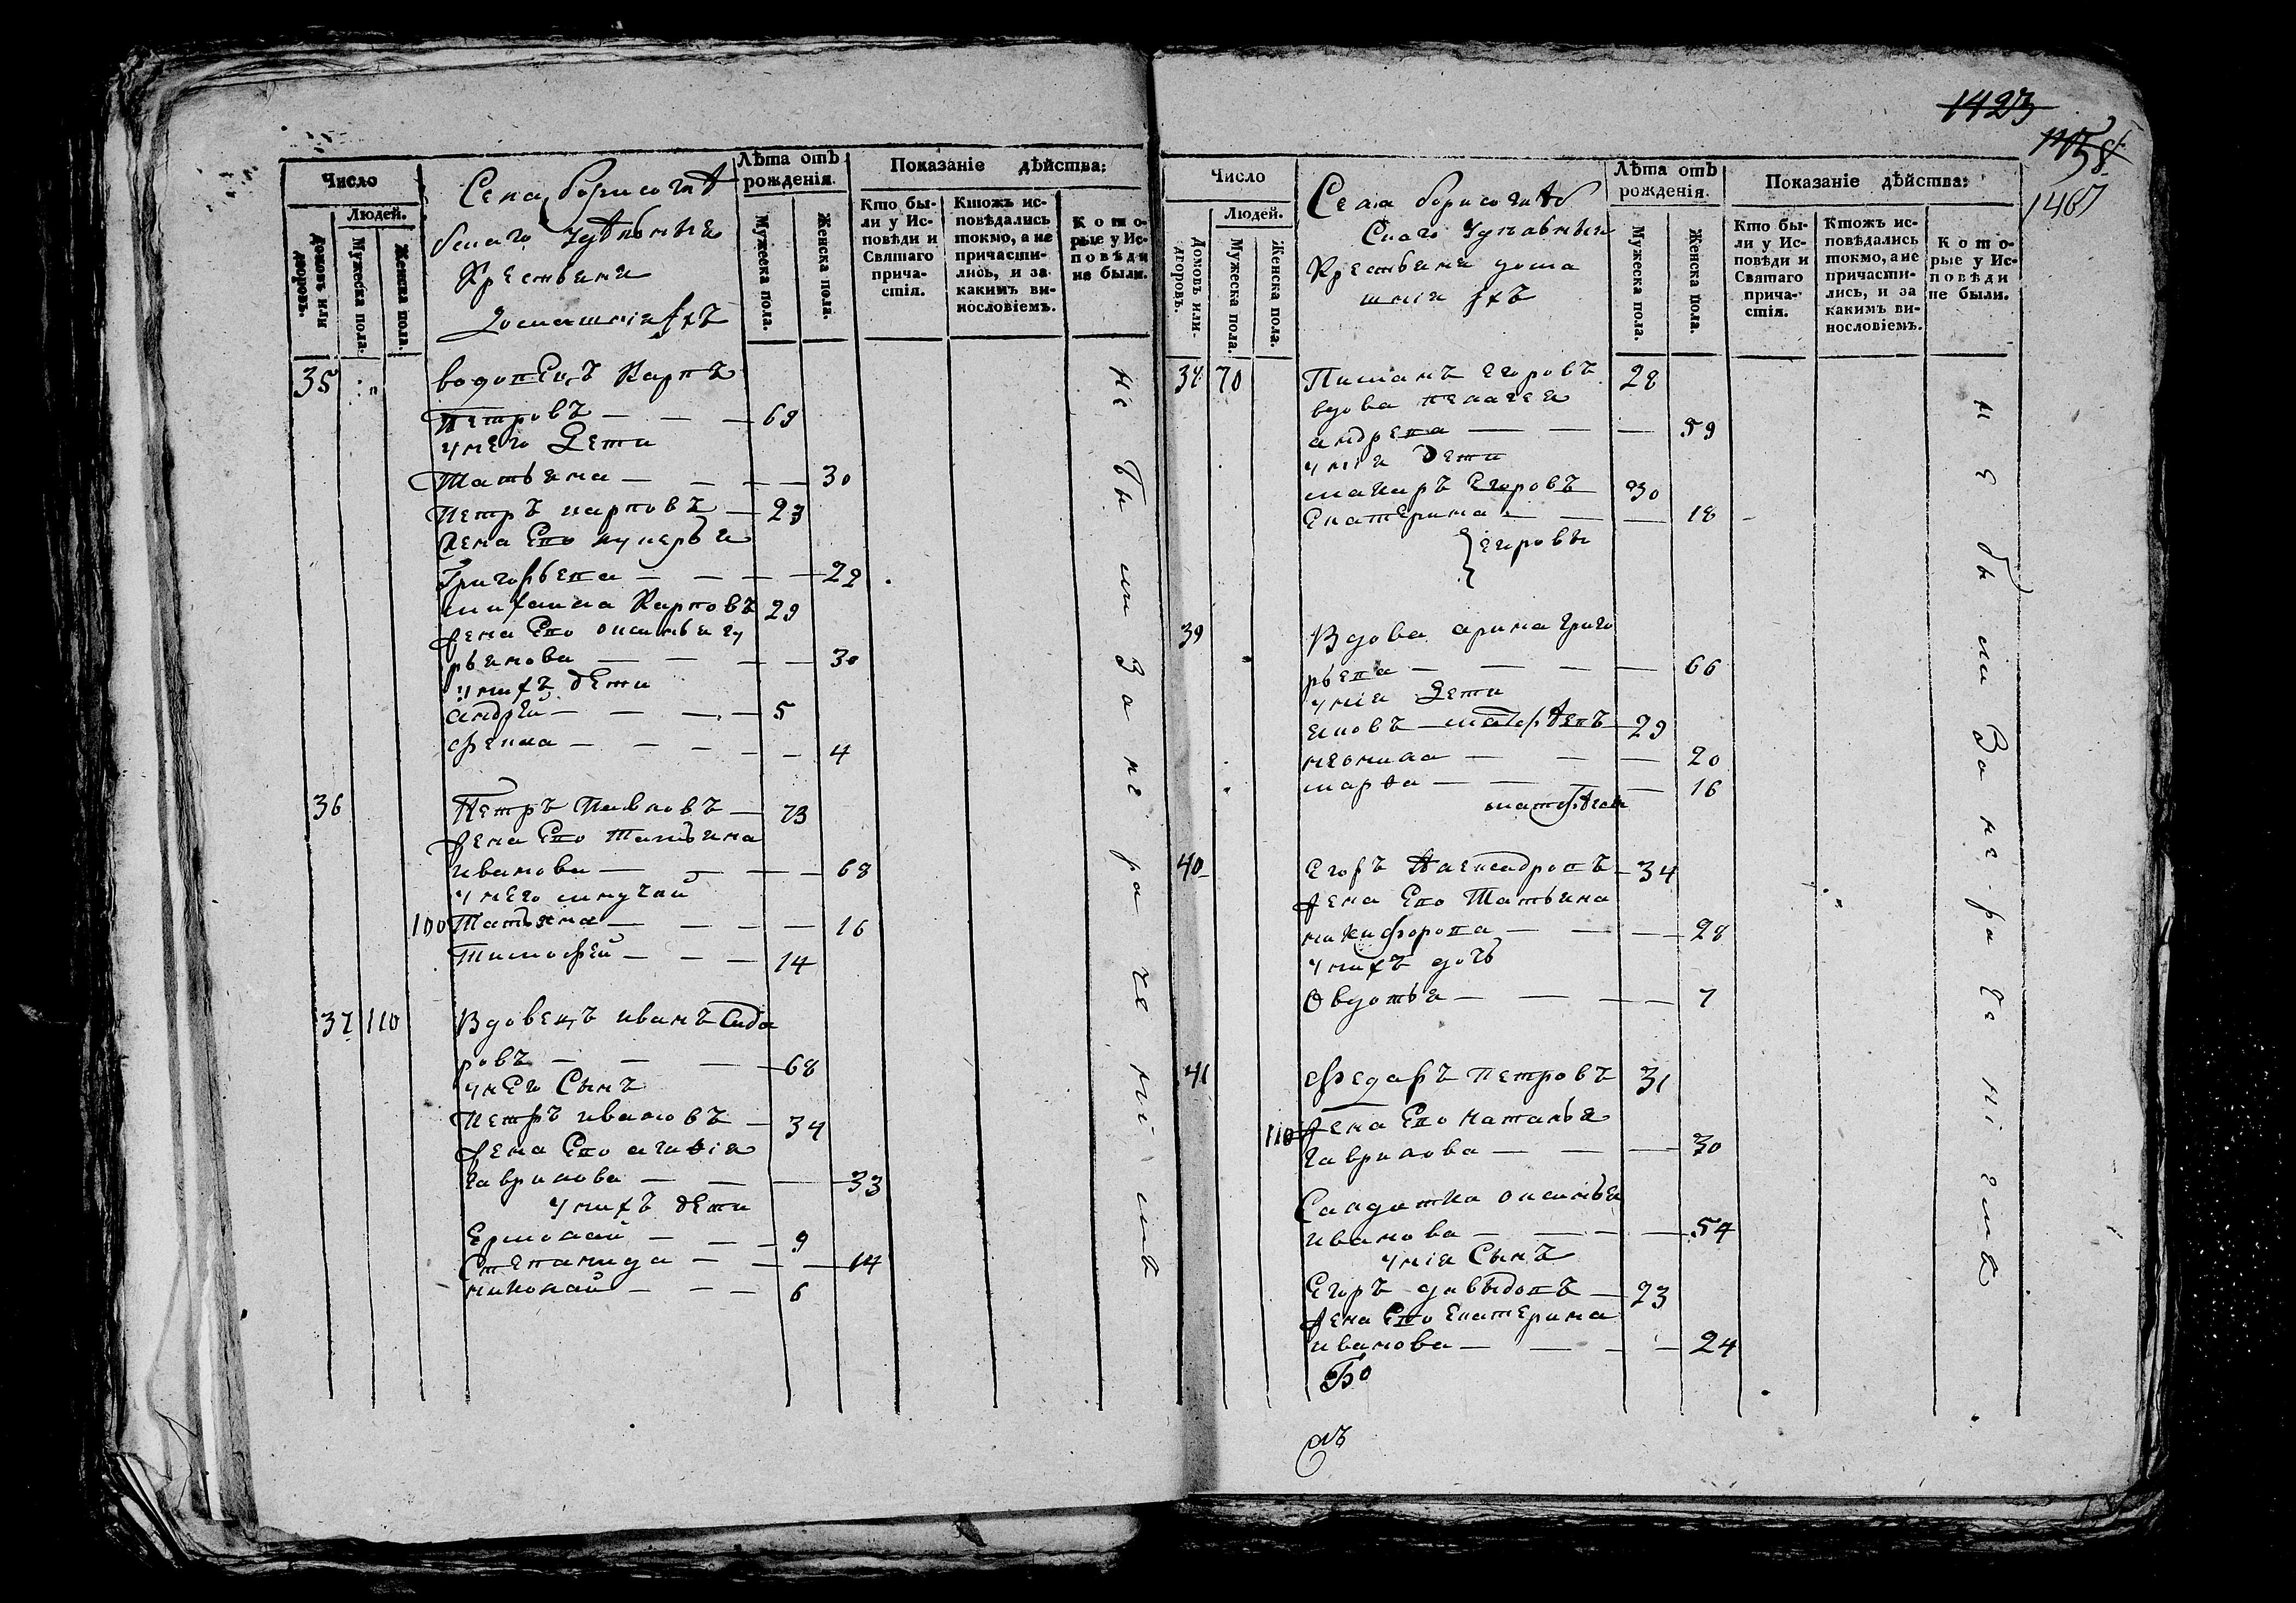 1423
1467
Число
Людей.
домовъ или дворовъ.
Мужеска пола.
Женска пола.
Села борисоглѣ
бскаго удѣльныя
Крестьяня
домашнія ихъ
Лѣта отъ
рожденія.
Мужеска пола.
Женска пола.
Показаніе дѣйства:
Кто бы-
ли у Ис-
повѣди и
Святаго
прича-
стія.
Ктожъ ис-
повѣдались
токмо, а не
причасти-
лись, и за
какимъ ви-
нословіемъ.
Кото-
рые у Ис-
повѣди
не были.
35 водовецъ Карпъ
Петровъ — — — 69
у него Дети
Татьяна — — — 30
Петръ карповъ — 23
жена Его лукерья
Григорьева — — — 22
михаила Карповъ 29
жена Его оксинья гу
рьянова — — — 30
у нихъ дети
андрей — — — 5
фекла — — — 4
36 Петръ Павловъ — 73
жена Его Татьяна
иванова — — — 68
у него внучки
100 Татьяна — — — 16
Тимофей — — — 14
37 110 Вдовецъ иванъ Сидо
ровъ — — — 68
у нег Сынъ
Петръ ивановъ — 34
жена Его агафія
гаврилова — — — 33
у нихъ дети
Ермолай — — — 9
Степанида — — — 14
николай — — — 6
не были за нерачениемъ
Число
Людей.
Домовъ или
дворовъ.
Мужеска пола.
Женска пола.
Села борисоглѣб
Скаго удѣльныя
Крестьяня дома
шнія ихъ
Лѣта отъ
рожденія.
Мужеска пола.
Женска пола.
Показаніе дѣйства:
Кто бы-
ли у Ис-
повѣди и
Святаго
прича-
стія.
Ктожъ ис-
повѣдались
токмо, а не
причасти-
лись, и за
какимъ ви-
нословіемъ.
Кото-
рые у Ис-
повѣди
не были.
38 70 Егоровъ 28
вдова пелагея
андрева — — — 59
у нія дети
макаръ Егоровъ 30
Екатерина — — 18
} егоровы
39 Вдова арина григо
рьева — — — 66
у нія Дети
яковъ — матфѣевъ — 29
неонила — — — 20
марѳа — — — 16
матфѣевы
40 Егоръ Алексадровъ — 34
жена Его Татьяна
никифорова — — — 28
у нихъ дочь
Овдотья — — — 7
41 Федаръ петровъ 31
110 жена Его наталья
гаврилова — — — 30
Салдатка оксинья
иванова — — — 54
у нія Сынъ
Егоръ давыдовъ — 23
жена Его Екатерина
иванова — — — 24
Бо
не были за нерачениемъ